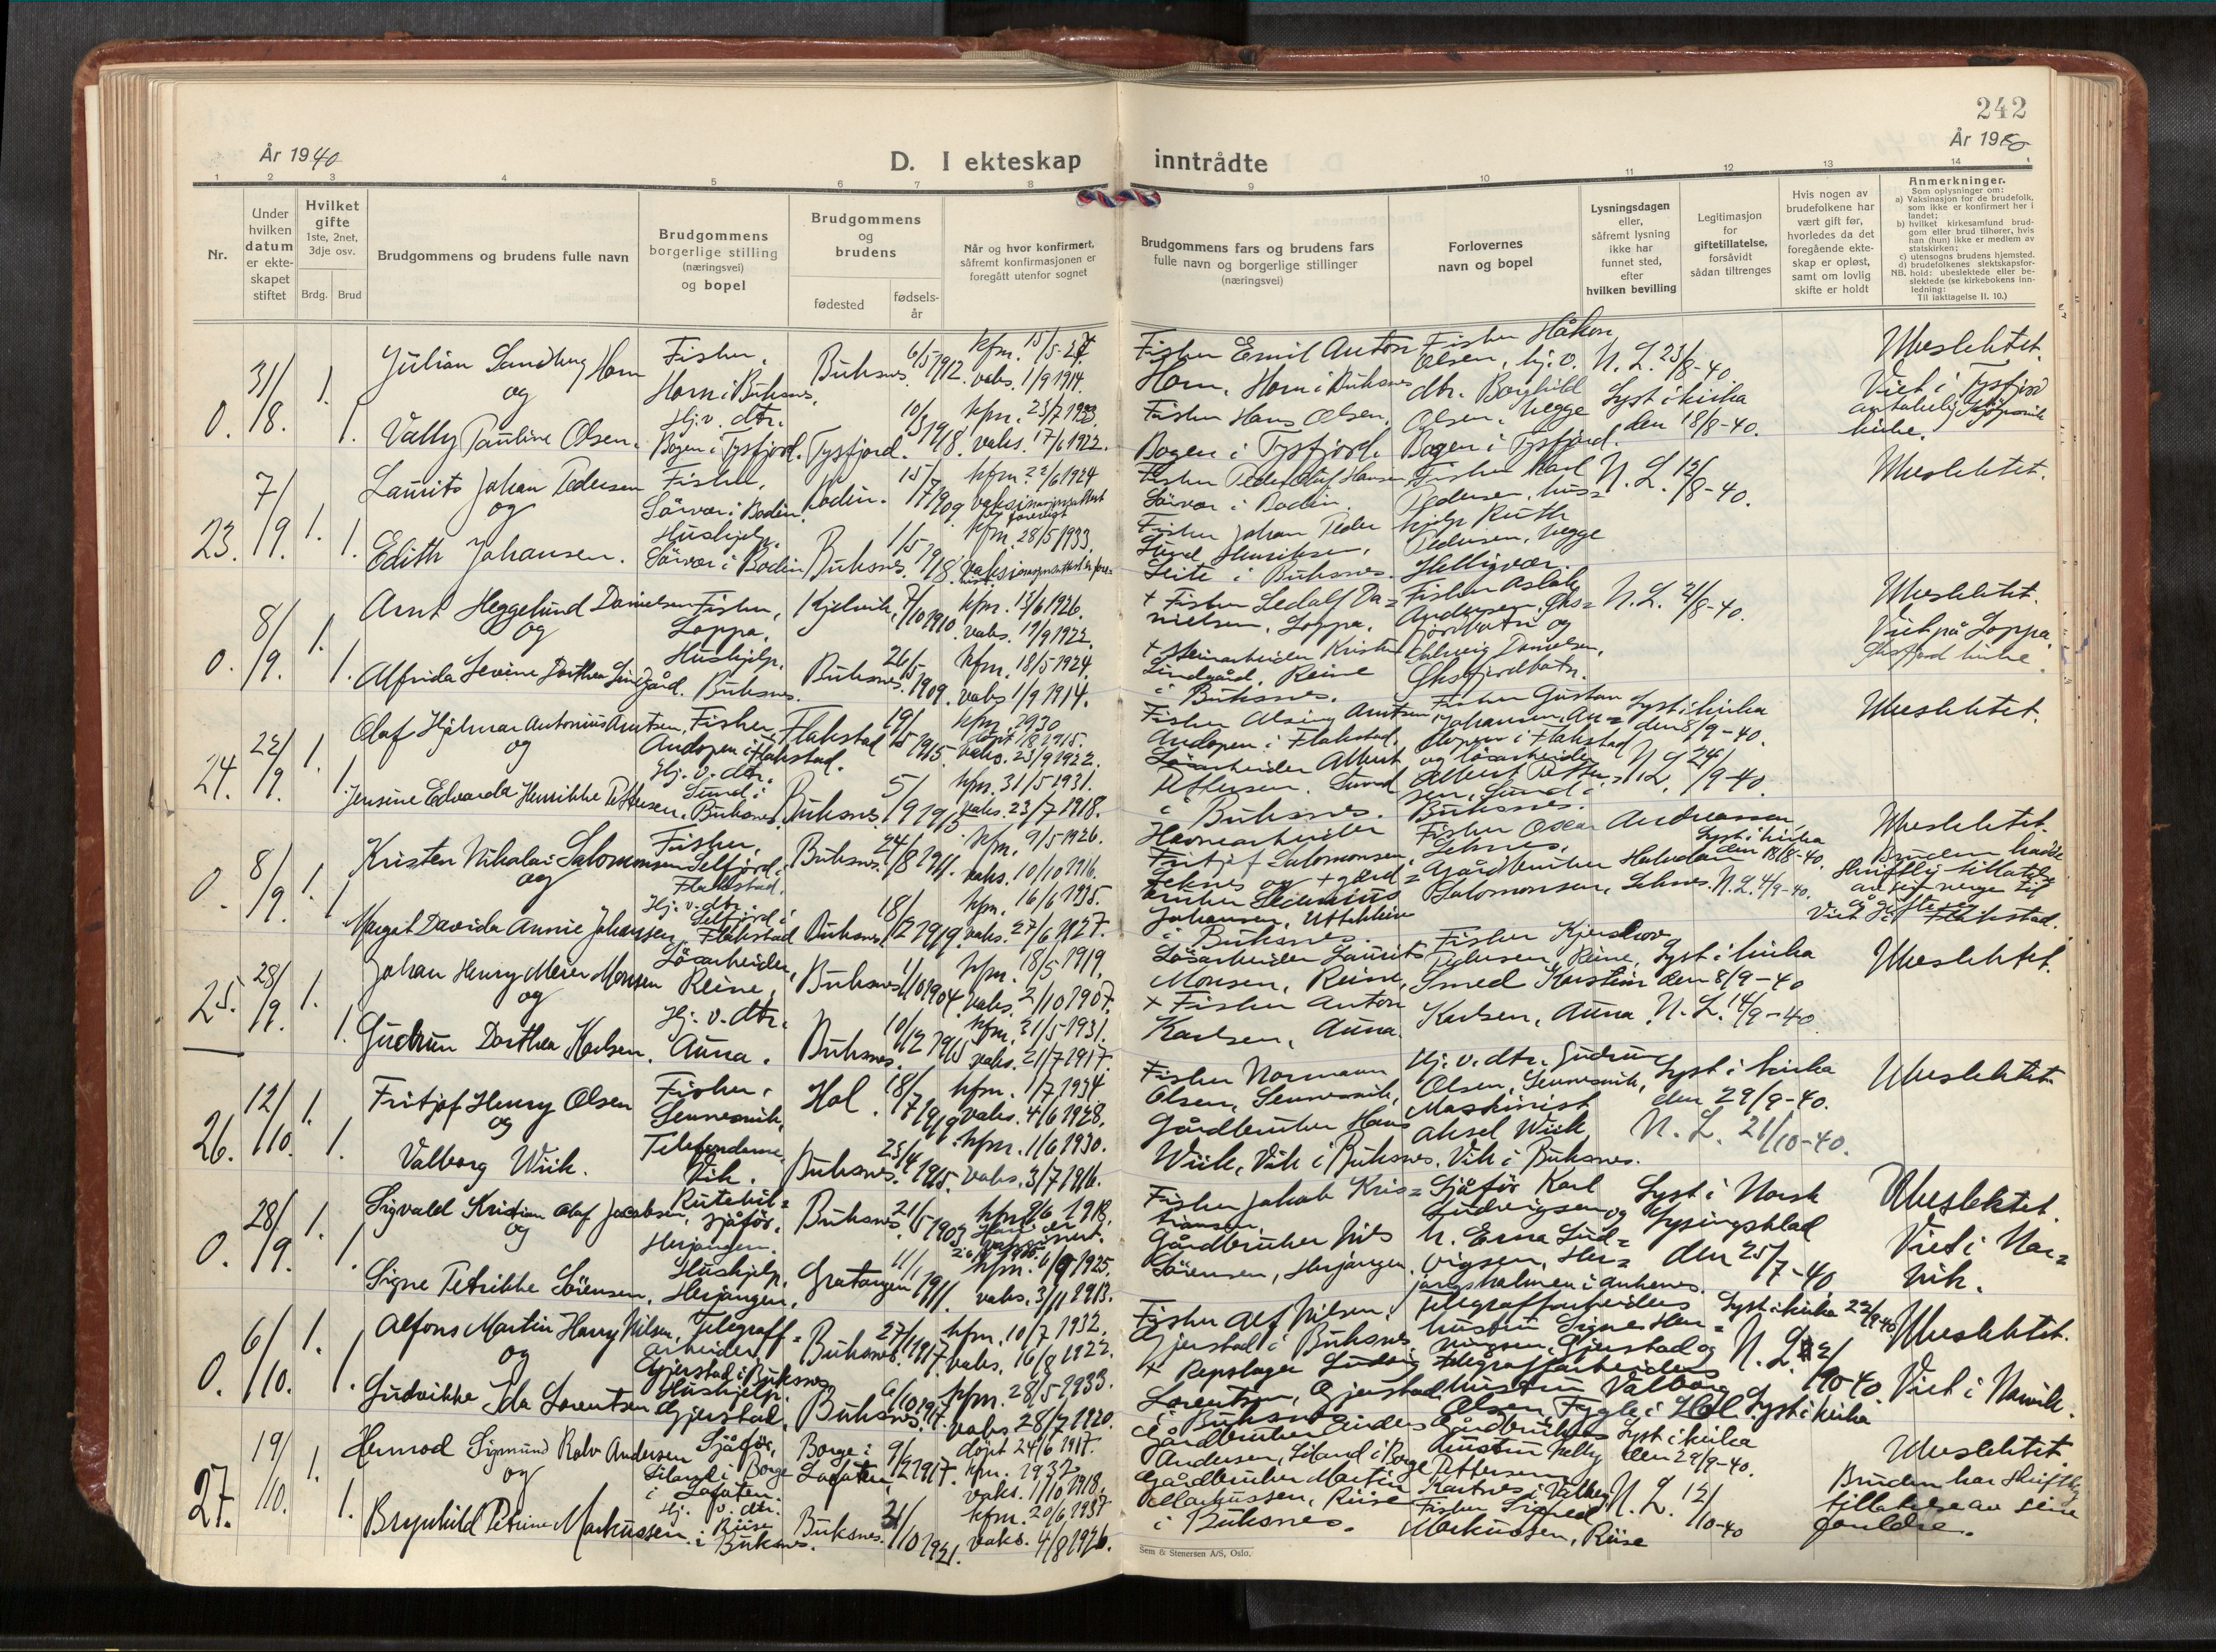 242
År 1940
År 1940
D. I ekteskap
inntrådte
1 2 3 4 5 6 7 8
9 10 11 12 13 14
Nr.
Under hvilken datum er ekteskapet stiftet
Hvilket gifte
1ste, 2net, 3dje osv.
Brdg. Brud
Brudgommens og brudens fulle navn
Brudgommens borgerlige stilling (næringsvei) og bopel
Brudgommens og brudens
fødested
fødselsår
Når og hvor konfirmert, såfremt konfirmasjonen er foregått utenfor sognet
Brudgommens fars og brudens fars fulle navn og borgerlige stillinger (næringsvei)
Forlovernes navn og bopel
Lysningsdagen eller, såfremt lysning ikke har funnet sted, efter hvilken bevilling
Legitimasjon for giftetillatelse, forsåvidt sådan tiltrenges
Hvis nogen av brudefolkene har vært gift før, hvorledes da det foregående ekteskap er opløst, samt om lovlig skifte er holdt
Anmerkninger.
Som oplysninger om:
a) Vaksinasjon for de brudefolk, som ikke er konfirmert her i landet;
b) hvilket kirkesamfund brudgom eller brud tilhører, hvis han (hun) ikke er medlem av statskirken;
c) utensogns brudens hjemsted.
d) brudefolkenes slektskapsforhold: ubeslektede eller beslektede (se kirkebokens innledning:
NB.
Til iakttagelse II. 10.)
0. 31/8. 1. 1.
Julian Sandberg Horn
og
Vally Pauline Olsen.
Fisker.
Horn i Buksnes.
Hj.v. dtr.
Bogen i Tysfjord.
Buksnes. 6/5 1912.
Tysfjord.
kfm. 15/5-27
vaks. 1/9 1914.
kfm. 23/7 1933.
vaks. 17/6 1922.
Fisker Emil Anton
Horn, Horn i Buksnes
Fisker Hans Olsen,
Bogen i Tysfjord.
Fisker Håkon
Olsen, hj.v.
dtr. Borghild
Olsen, begge
Bogen i Tysfjord.
N. L. 23/8-40
Lyst i kirka
den 18/8-40.
Ubeslektet.
Viet i Tysfjord
kirke.
23. 7/9. 1. 1.
Laurits Johan Pedersen
og
Edith Johansen.
Fisker,
Sårvær i Bodin.
Hushjelp.
Sårvær i Bodin
Bodin. 15/7 1909
Buksnes. 1/5 1918.
kfm. 22/6 1924
kfm. 28/5 1933.
Fisker Peder Oluf Hansen
Sårvær i Bodin
Fisker Johan Peder
Sund Henriksen,
Leite i Buksnes.
Fisker Karl
Pedersen, hus=
hjelp Ruth
Pedersen, begge
Helligvær.
N. L. 12/8-40.
Ubeslektet.
0. 8/9. 1. 1.
Arnt Heggelund Danielsen
og
Alfrida Levine Dorthea Lindgård.
Fisker,
Loppa.
Hushjelp.
Buksnes.
Kjelvik, 7/10 1910
Buksnes. 26/5 1909.
kfm. 13/6 1926.
vaks. 19/9 1922.
kfm. 18/5 1924.
vaks 1/9 1914.
+ Fisker Ledolf Da=
nielsen, Loppa.
Lindgård, Reine
i Buksnes.
Fisker Aslak
Andersen, Øks=
fjordbotn og
Danielsen,
Øksfjordbotn.
N. L. 21/8-40.
Ubeslektet.
Viet på Loppa,
Øksfjord kirke.
24. 22/9. 1. 1.
Olaf Hjalmar Antonius Arntsen,
og
Jensine Edvarda Henrikke Pettersen,
Fisker,
Andopen i Flakstad.
Hj. v. dtr.
Sund i
Buksnes.
Flakstad
Buksnes.
kfm. 1930
vaks. 23/9 1922.
kfm. 31/5 1931.
vaks. 23/7 1918.
Andopen i Flakstad.
Løsarbeider Albert
Pettersen. Sund
i Buksnes.
Fisker Gustav
Johansen, An=
dopen i Flakstad
og løsarbeider
Albert Petter=
sen, Sund i
Buksnes.
Lyst i kirka
den 8/9-40.
N. L. 24/9-40.
Ubeslektet.
0. 8/9. 1. 1
Kristen Nikolai Salomonsen
og
Margit Davida Annie Johansen
Fisker,
Selfjord i
Flakstad.
Hj. v. dtr.
Selfjord i
Flakstad
Buksnes. 24/8 1911.
Buksnes 18/2 1919.
kfm. 9/5 1926.
vaks. 10/10 1916.
kfm. 16/6 1935.
vaks. 27/6 1927.
Havnearbeider
Fritjof Salomonsen,
Leknes og + gård=
bruker
Johansen, Uttakleiv
i Buksnes.
Fisker Oscar Andreassen
Leknes,
Gårdbruker Halvdan
Salomonsen, Leknes.
Lyst i kirka
den 18/8-40.
N. L. 4/9-40.
Ubeslektet.
Bruden hadde
skriftlig tillatelse
av sin verge til
å gifte seg
Viet i Flakstad.
25. 28/9. 1. 1.
Johan Henry Meier Monsen
og
Gudrun Dorthea Karlsen.
Løsarbeider,
Reine,
Hj. v. dtr.
Auna.
Buksnes 1/10 1904.
Buksnes. 10/12
kfm. 18/5 1919.
vaks. 2/10 1907.
kfm. 31/5 1931.
vaks. 21/7 1917.
Løsarbeider Laurits
Monsen, Reine,
+ Fisker Anton
Karlsen, Auna.
Fisker
Pedersen, Reine,
Smed
Karlsen, Auna.
Lyst i kirka
den 8/9-40
N. L. 14/9-40
Ubeslektet.
26. 12/10. 1. 1.
Fritjof Henry Olsen
og
Valborg Wiik.
Fisker,
Sennesvik,
Telefondame,
Vik.
Hol. 18/7 1919
Buksnes. 25/4 1915.
kfm. 1/7 1934
vaks. 4/6 1928.
kfm. 1/6 1930.
vaks. 3/7 1916.
Fisker Normann
Olsen, Sennesvik,
Gårdbruker Hans
Wiik, Vik i Buksnes.
Hj. v. dtr. Gudrun
Olsen, Sennesvik,
Maskinist
Aksel Wiik
Vik i Buksnes.
Lyst i kirka
den 29/9-40.
N. L. 21/10-40.
Ubeslektet.
0. 28/9. 1. 1.
Sigvald Kristian Olaf Jacobsen,
og
Signe Petrikke Sørensen,
Rutebil=
sjåfør.
Herjangen.
Hushjelp,
Herjangen,
Buksnes 21/5 1903
Gratangen 11/1 1911.
kfm. 9/6 1918.
kfm. 6/9 1925.
vaks. 3/11 1913.
Fisker Jakob Kris=
tiansen,
Gårdbruker Nils
Sørensen, Herjangen,
Sjåfør Karl
Ludvigsen og
fr. Erna Lud=
vigsen, Her=
jangsholmen i Ankenes.
Lyst i Norsk
Lysingsblad
den 25/7-40
Ubeslektet.
Viet i Nar=
vik.
0. 6/10. 1. 1.
Alfons Martin Harry Nilsen,
og
Ludvikke Ida Lorentsen
Telegraff=
arbeider,
Gjerstad i Buksnes
Hushjelp.
Gjerstad.
Buksnes. 27/1 1917.
Buksnes. 6/10 1917.
kfm. 10/7 1932.
vaks. 16/8 1922.
kfm. 28/5 1933.
vaks 28/7 1920.
Fisker Alf Nilsen,
Gjerstad i Buksnes
+ Repslager Ludvig
Lorentsen, Gjerstad
i Buksnes
Telegrafarbeiders
hustru Signe Hen=
ningsen, Gjerstad og
telegrafarbeiders
hustru Valborg
Olsen, Fygle i Hol.
Lyst i kirka 22/9 40
N. L. 2/10-40
Ubeslektet.
Viet i Narvik.
27. 19/10. 1. 1.
Hermod Sigmund Rolv Andersen
og
Brynhild Petrine Markussen.
Sjåfør,
Liland i Borge
i Lofoten.
Hj. v. dtr.
Riise
i Buksnes.
Borge i
Lofoten,
9/2 1917.
Buksnes. 21/10 1921.
døpt 24/6 1917.
kfm. 1932
vaks. 1/10 1918.
kfm. 20/6 1937
vaks. 4/8 1926.
Gårdbruker Anders
Andersen, Liland i Borge
Gårdbruker Martin
Markussen, Riise
i Buksnes.
Gårdbrukers
hustru Nelly
Pettersen,
Kartnes i Valberg
Fisker Sigfred
Markussen, Riise
Lyst i kirka
den 29/9-40.
N. L. 12/10-40
Ubeslektet.
Bruden har skriftlig
tillatelse av sine
foreldre.
Sem & Stenersen A/S, Oslo.